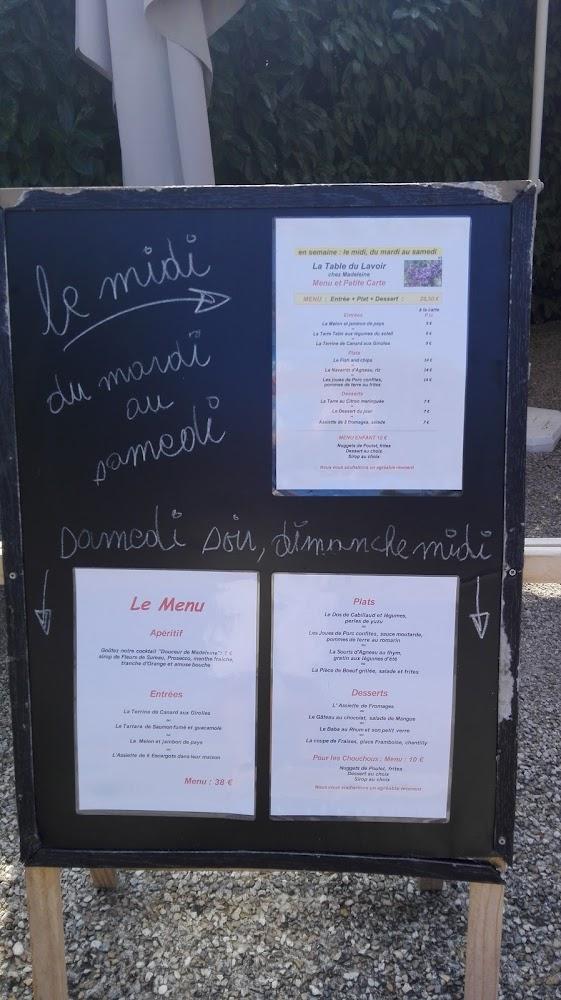 le midi
du mardi
au
samedi
en semaine : le midi, du mardi au samedi
La Table du Lavoir
chez Madeleine
Menu et Petite Carte
MENU : Entrée + Plat + Dessert :
à la carte
Entrées
Le Melon et jambon de pays
La Tarte Tatin aux légumes du soleil
La Terrine de Canard aux Girolles
Plats
Le Fish and chips 14 €
Le Navarin d'Agneau, riz 14 €
Les joues de Porc confites, 14 €
pommes de terre au frites
Desserts
La Tarte au Citron meringuée 7 €
Le Dessert du jour 7 €
Assiette de 3 fromages, salade 7 €
MENU ENFANT 10 €
Nuggets de Poulet, frites
Dessert au choix
Sirop au choix
Nous vous souhaitons un agréable moment
samedi soir, dimanche midi
Le Menu
Apéritif
Goûtez notre cocktail "Douceur de Madeleine": 7 €
sirop de Fleurs de Sureau, Prosecco, menthe fraîche,
tranche d'Orange et amuse bouche
Entrées
La Terrine de Canard aux Girolles
Le Tartare de Saumon fumé et guacamole
Le Melon et jambon de pays
L'Assiette de 6 Escargots dans leur maison
Menu : 38 €
Plats
Le Dos de Cabillaud et légumes,
perles de yuzu
Les Joues de Porc confites, sauce moutarde,
pommes de terre au romarin
La Souris d'Agneau au thym,
gratin aux légumes d'été
La Pièce de Boeuf grillée, salade et frites
Desserts
L'Assiette de Fromages
Le Gâteau au chocolat, salade de Mangue
Le Baba au Rhum et son petit verre
La coupe de Fraises, glace Framboise, chantilly
Pour les Chouchoux : Menu : 10 €
Nuggets de Poulet, frites
Dessert au choix
Sirop au choix
Nous vous souhaitons un agréable moment